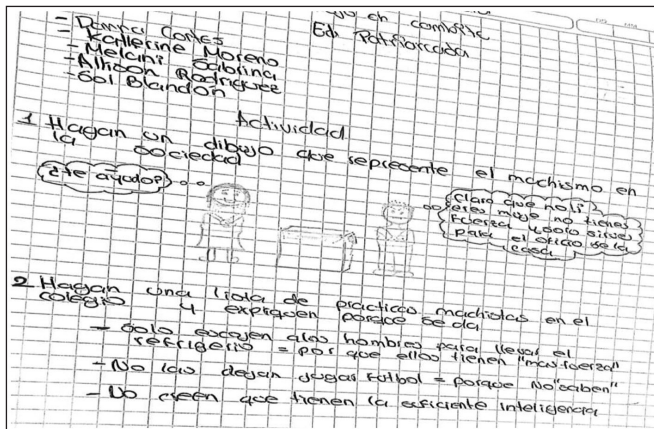 en combite
- Danna Cortes
Ed. Patriarcada
- Katlerine Moreno
- Melani Sabrina
- Allison Rodriguez
- Sol Blandon
Actividad
1 Hagan un dibujo que represente el machismo en
la sociedad
¿te ayudo?
Claro que no!!
eres muje no tienes
fuerza y solo sirves
para el oficio de la
casa
2 Hagan una lista de practicas machistas en el
colegio y expliquen porque se da
- Solo escojen alos hombres para llevar el
refrigerio = por que ellos tienen "mas fuerza"
- No las dejan jugar futbol = porque No "saben"
- No creen que tienen la suficiente inteligencia